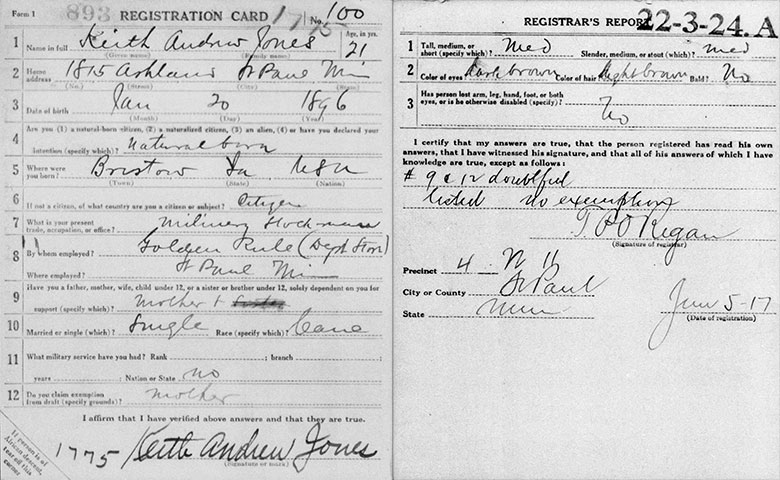 Form 1 893 REGISTRATION CARD 1775 No. 100
1 Name in full Keith Andrew Jones Age, in yrs. 21
(Given name) (Family name)
2 Home address 1815 Ashland St Paul Min
(No.) (Street) (City) (State)
3 Date of birth Jan 20 1896
(Month) (Day) (Year)
4 Are you (1) a natural-born citizen, (2) a naturalized citizen, (3) an alien, (4) or have you declared your
intention (specify which)? Natural born
5 Where were you born? Bristow Ia USA
(Town) (State) (Nation)
6 If not a citizen, of what country are you a citizen or subject? Citizen
7 What is your present trade, occupation, or office? Millinery Stockman
8 By whom employed? Golden Rule (Dept Store)
Where employed? St Paul Min
9 Have you a father, mother, wife, child under 12, or a sister or brother under 12, solely dependent on you for
support (specify which)? Mother +
10 Married or single (which)? Single Race (specify which)? Cauc
11 What military service have you had? Rank ; branch ;
years ; Nation or State no
12 Do you claim exemption from draft (specify grounds)? Mother
I affirm that I have verified above answers and that they are true.
1775 Keith Andrew Jones
(Signature or mark)
If person is of
African descent,
tear off this
corner.
REGISTRAR'S REPORT 22-3-24. A
1 Tall, medium, or short (specify which)? Med Slender, medium, or stout (which)? med
2 Color of eyes dark brown Color of hair light brown Bald? No
3 Has person lost arm, leg, hand, foot, or both
eyes, or is he otherwise disabled (specify)? No
I certify that my answers are true, that the person registered has read his own
answers, that I have witnessed his signature, and that all of his answers of which I have
knowledge are true, except as follows:
# 9 & 12 doubtful
listed no exemption
T P O'Regan
(Signature of registrar)
Precinct 4 W 11
City or County St Paul
State Minn June 5-17
(Date of registration)